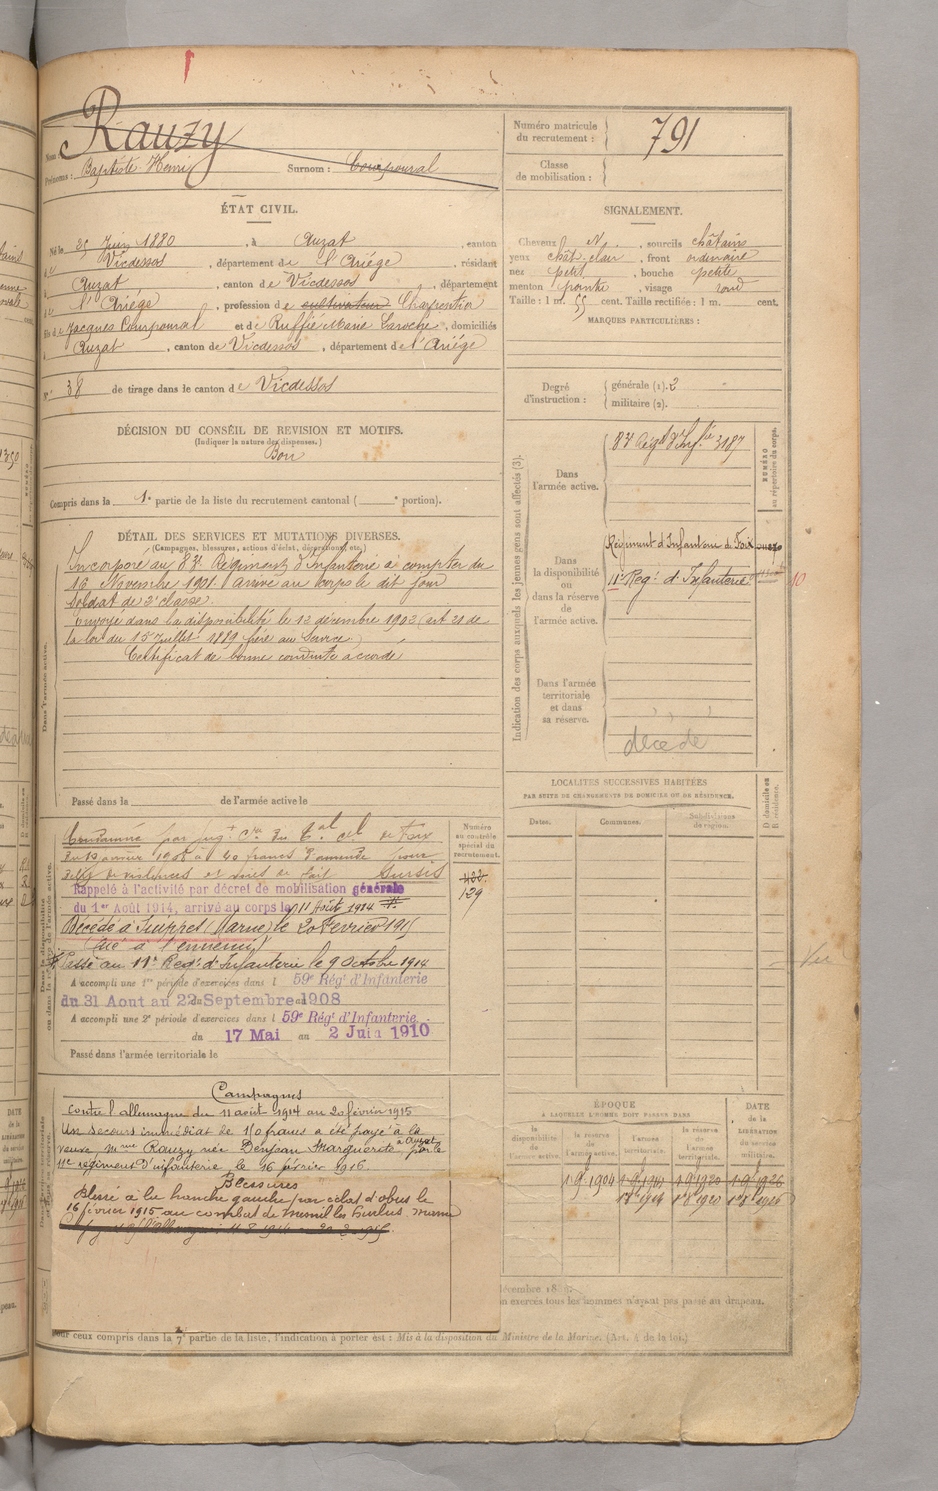 Nom : Rauzy
Prénoms : Baptiste Henri Surnom :
Numéro matricule du recrutement : 791
Classe de mobilisation :
ÉTAT CIVIL.
Né le 25 Juin 1880, à Auzat, canton
de Vicdessos, département de l'Ariége, résidant
à Auzat, canton de Vicdessos, département
de l'Ariége, profession de cultivateur Charpentier
fils de Jacques Compourval et de Ruffié Marie Laroche, domiciliés
à Auzat, canton de Vicdessos, département de l'Ariége
N° 38 de tirage dans le canton de Vicdessos
SIGNALEMENT.
Cheveux N., sourcils châtains
yeux chât. clair, front ordinaire
nez petit, bouche petite
menton pointu, visage rond
Taille : 1 m. 55 cent. Taille rectifiée : 1 m. cent.
MARQUES PARTICULIÈRES :
Degré d'instruction : générale (1). 2
militaire (2).
DÉCISION DU CONSEIL DE REVISION ET MOTIFS.
(Indiquer la nature des dispenses.)
Bon
Compris dans la 1e partie de la liste du recrutement cantonal ( e portion).
DÉTAIL DES SERVICES ET MUTATIONS DIVERSES.
(Campagnes, blessures, actions d'éclat, décorations, etc.)
Incorporé au 83e Régiment d'Infanterie à compter du
16 Novembre 1901. Arrivé au Corps le dit jour
soldat de 2e classe.
Envoyé dans la disponibilité le 12 décembre 1903 (art 21 de
la loi du 15 Juillet 1889 frère au Service)
Certificat de bonne conduite accordé
Dans l'armée active.
Passé dans la de l'armée active le
Indication des corps auxquels les jeunes gens sont affectés (3).
NUMÉRO au répertoire du corps.
Dans l'armée active.
83e Régt d'Inf.rie 3187
Dans la disponibilité ou dans la réserve de l'armée active.
Régiment d'Infanterie de Foix
11e Régt d'Infanterie
Dans l'armée territoriale et dans sa réserve.
décédé
LOCALITÉS SUCCESSIVES HABITÉES
PAR SUITE DE CHANGEMENTS DE DOMICILE OU DE RÉSIDENCE.
Dates. Communes. Subdivisions de région. D domicile ou R résidence.
Numéro au contrôle spécial du recrutement.
422
129
Condamné par jugt Cre du Tal cel de Foix
du janvier 1908 à 40 francs d'amende pour
délit de violences et voies de fait Sursis
Rappelé à l'activité par décret de mobilisation générale
du 1er Août 1914, arrivé au corps le 11 Août 1914
Décédé à Suippes (Marne) le 20 Février 1915
(tué à l'ennemi)
Passé au 11e Régt d'Infanterie le 9 Octobre 1914
A accompli une 1re période d'exercices dans l 59e Régt d'Infanterie
du 31 Aout au 22 Septembre 1908
A accompli une 2e période d'exercices dans l 59e Régt d'Infanterie
du 17 Mai au 2 Juin 1910
Passé dans l'armée territoriale le
Campagnes
Contre l'allemagne du 11 août 1914 au 20 février 1915
Un secours immédiat de 150 francs a été payé à la
veuve Mme Rauzy née Denjean Marguerite à Auzat par le
11e régiment d'infanterie le 16 février 1916.
Blessures
Blessé à la hanche gauche par éclat d'obus le
16 février 1915 au combat de mesnil les hurlus marne
ÉPOQUE
A LAQUELLE L'HOMME DOIT PASSER DANS
la disponibilité de l'armée active. la réserve de l'armée active. l'armée territoriale. la réserve de l'armée territoriale. DATE de la LIBÉRATION du service militaire.
1.9.1904 1.9.1914 1.9.1920 1.9.1926
1.8.1914 1.8.1920 1.8.1926
décembre 18
n exercés tous les hommes n'ayant pas passé au drapeau.
Pour ceux compris dans la 7e partie de la liste, l'indication à porter est : Mis à la disposition du Ministre de la Marine. (Art. 4 de la loi.)